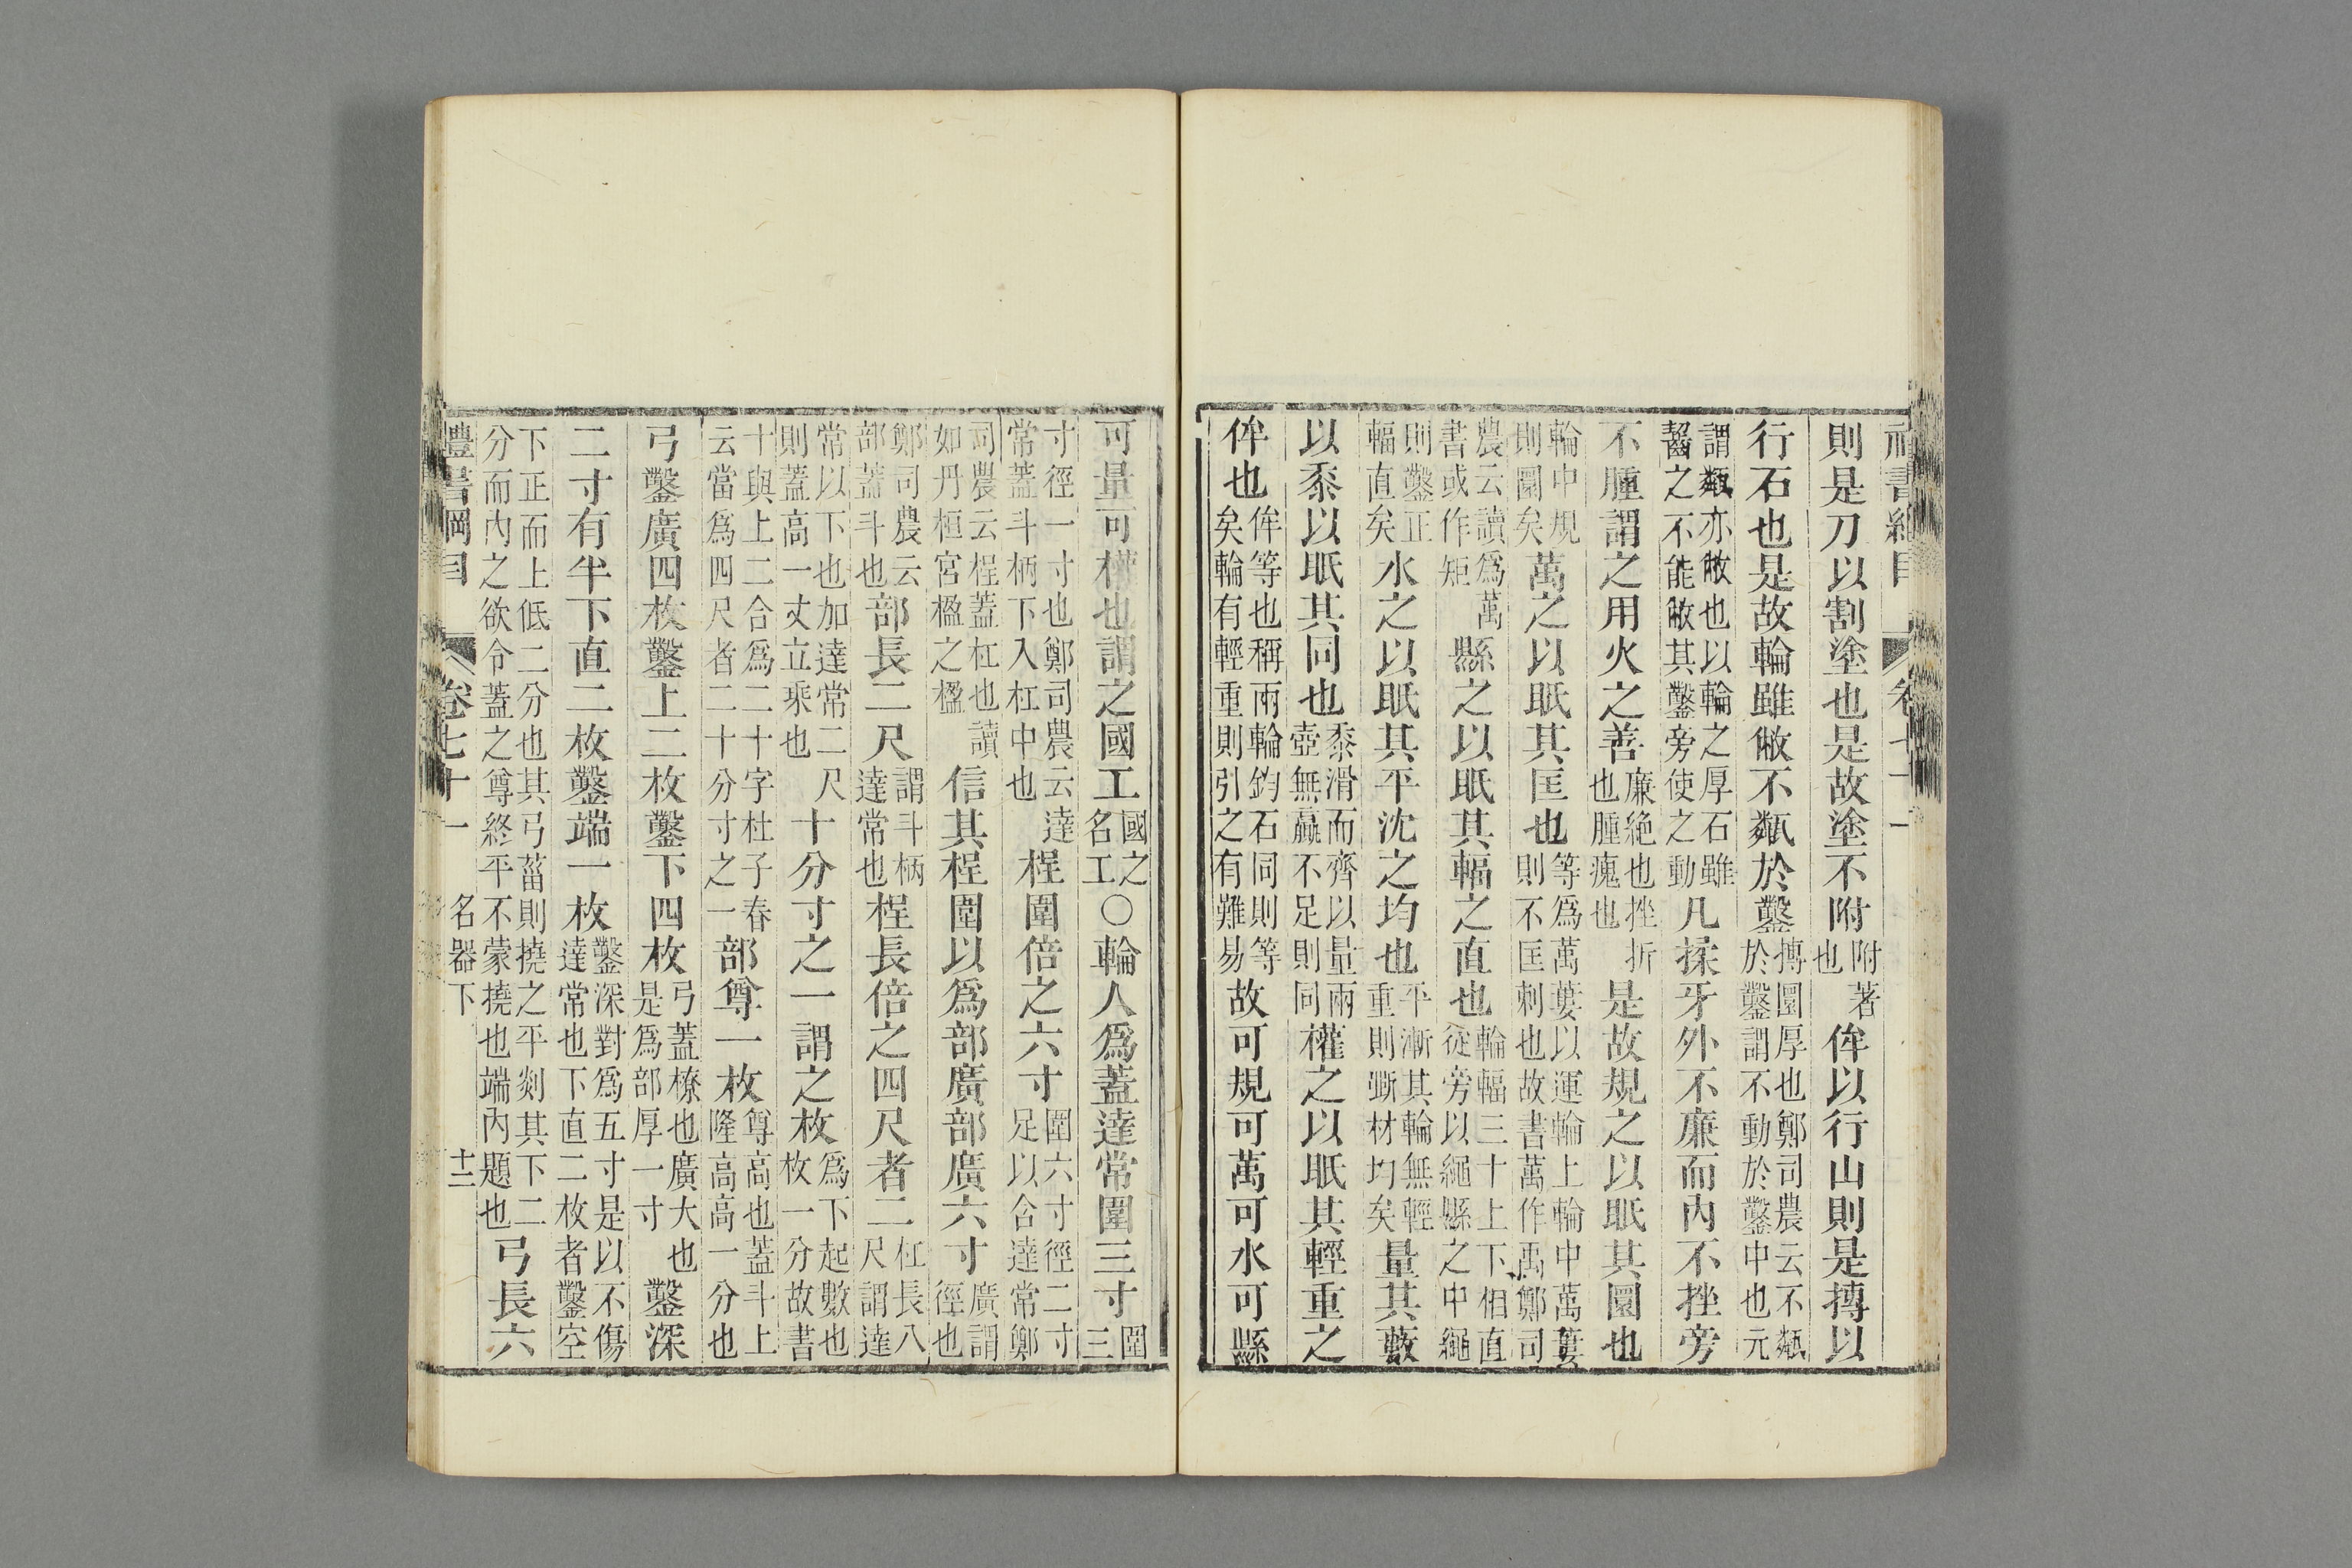 禮書綱目 卷七十一
則是刀以割塗也是故塗不附附著也侔以行山則是摶以
行石也是故輪雖敝不甐於鑿摶圜厚也鄭司農云不甐於鑿謂不動於鑿中也元
謂甐亦敝也以輪之厚石雖齧之不能敝其鑿旁使之動凡揉牙外不廉而內不挫旁
不腫謂之用火之善廉絶也挫折也腫瘣也是故規之以眡其圜也
輪中規則圜矣萬之以眡其匡也等爲萬蔞以運輪上輪中萬蔞則不匡刺也故書萬作禹鄭司
農云讀爲萬書或作矩縣之以眡其輻之直也輪輻三十上下相直從旁以繩縣之中繩
則鑿正輻直矣水之以眡其平沈之均也平漸其輪無輕重則斲材均矣量其藪
以黍以眡其同也黍滑而齊以量兩壺無羸不足則同權之以眡其輕重之
侔也侔等也稱兩輪鈞石同則等矣輪有輕重則引之有難易故可規可萬可水可縣
可量可權也謂之國工國之名工○輪人爲蓋達常圍三寸圍三
寸徑一寸也鄭司農云達常蓋斗柄下入杠中也桯圍倍之六寸圍六寸徑二寸足以含達常鄭
司農云桯蓋杠也讀如丹桓宮楹之楹信其桯圍以爲部廣部廣六寸廣謂徑也
鄭司農云部蓋斗也部長二尺謂斗柄達常也桯長倍之四尺者二杠長八尺謂達
常以下也加達常二尺則蓋高一丈立乘也十分寸之一謂之枚爲下起數也枚一分故書
十與上二合爲二十字杜子春云當爲四尺者二十分寸之一部尊一枚尊高也蓋斗上隆高高一分也
弓鑿廣四枚鑿上二枚鑿下四枚弓蓋橑也廣大也是爲部厚一寸鑿深
二寸有半下直二枚鑿端一枚鑿深對爲五寸是以不傷達常也下直二枚者鑿空
下正而上低二分也其弓菑則撓之平剡其下二分而內之欲令蓋之尊終平不蒙撓也端內題也弓長六
禮書綱目 卷七十一 名器下 十二